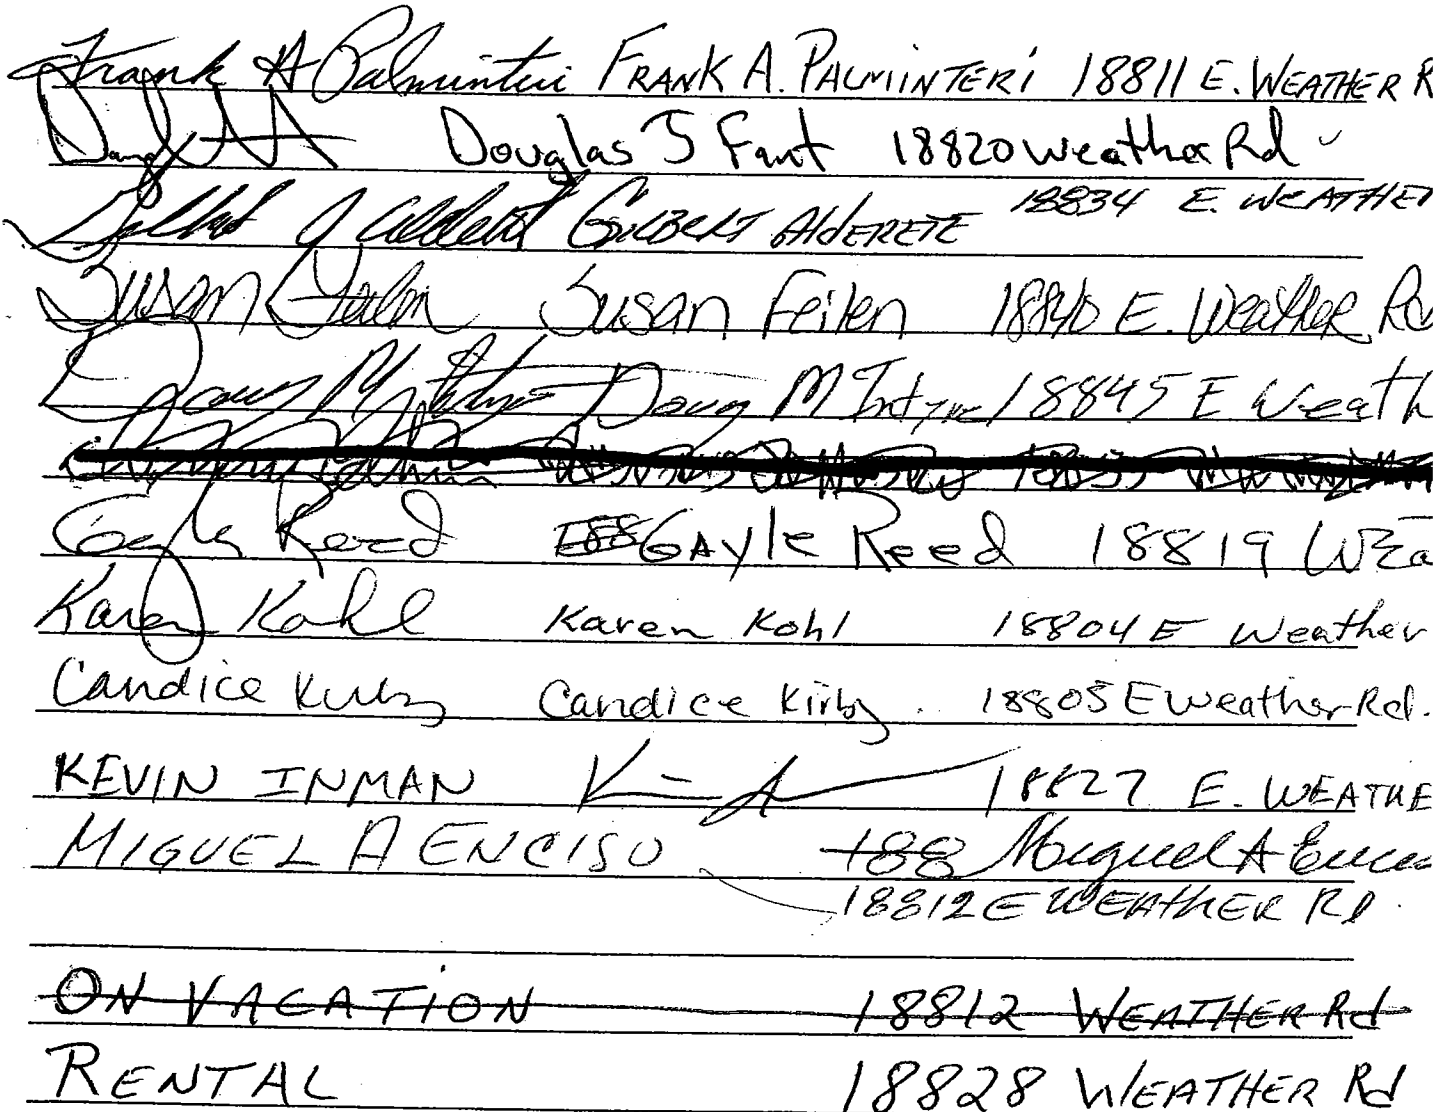 Frank A Palminteri FRANK A. PALMINTERI 18811 E. WEATHER R
Douglas J Fant 18820 Weather Rd
Gilbert J Alderete GILBERT AlDERETE 18834 E. WEATHER
Susan Susan Feilen 18840 E. Weather Rd
Doug McIntyre Doug McIntyre 18845 E Weath
Gayle Reed 188 GAYle Reed 18819 Wea
Karen Kohl Karen Kohl 18804 E Weather
Candice Kirby Candice Kirby 18805 E Weather Rd.
KEVIN INMAN 18827 E. WEATHE
MIGUEL A ENCISO 188 Miguel A Enciso
18812 E WEATHER Rd.
ON VACATION 18812 WEATHER Rd
RENTAL 18828 WEATHER Rd